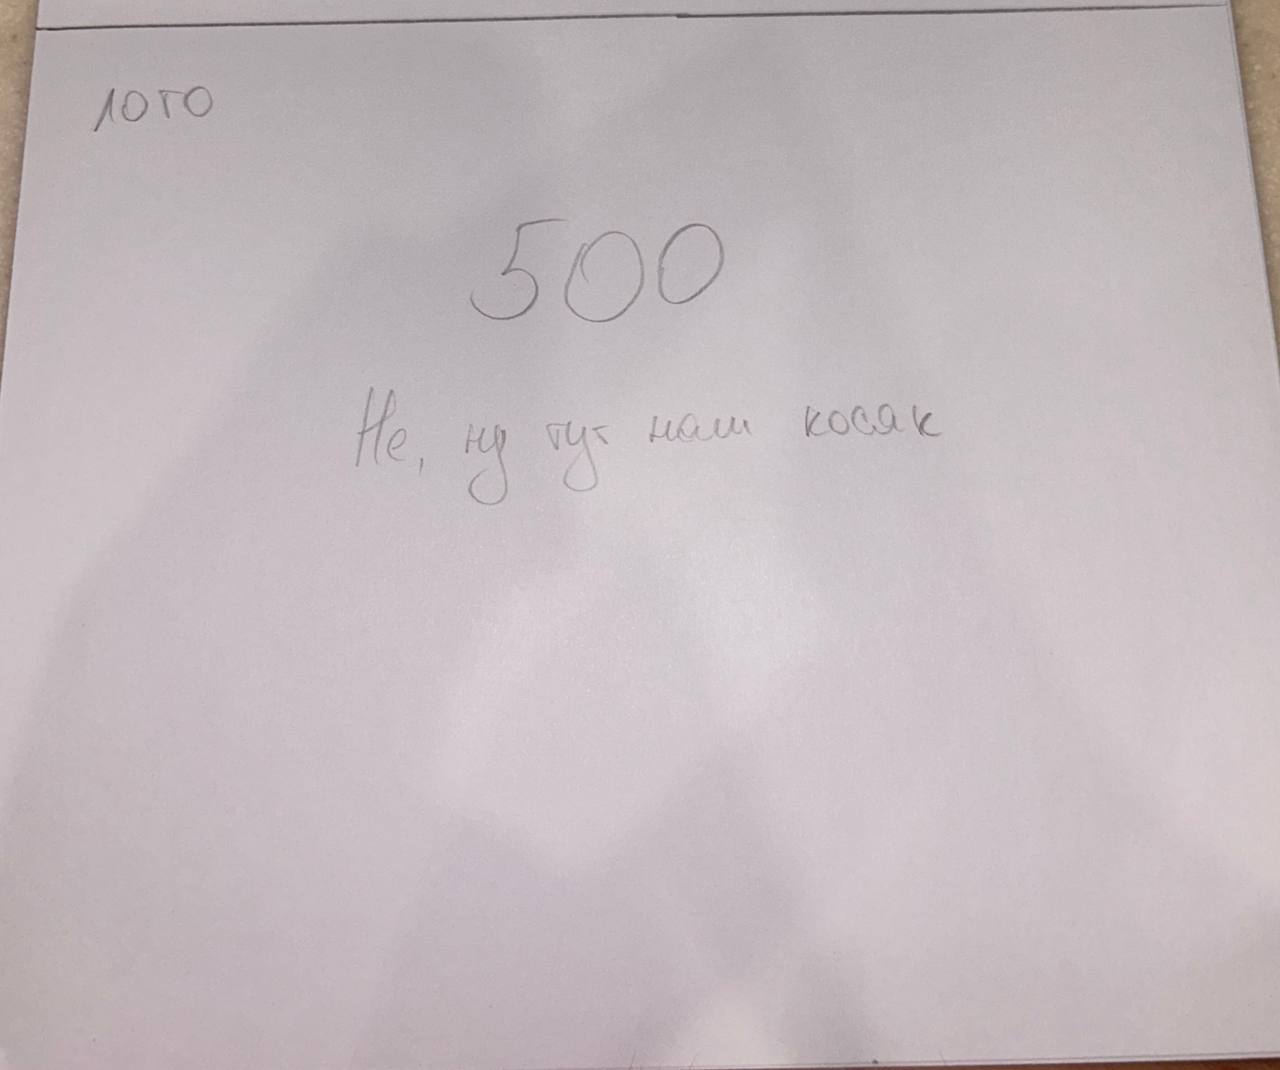 лого
500
Не, ну тут наш косяк